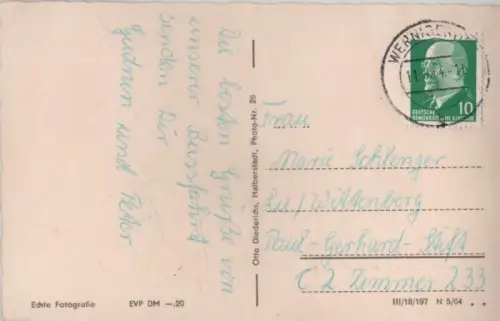 Die besten Grüße von
unserer Busfahrt
senden Dir
Gudrun und Peter
Otto Diederichs, Halberstadt, Photo-Nr. 26
WERNIGERODE
10
DEUTSCHE
DEMOKRATISCHE REPUBLIK
Frau
Marie Schlenger
Lu/Wittenberg
Paul-Gerhard-Stift
C 2 Zimmer 233
Echte Fotografie EVP DM —.20
III/18/197 N 5/64